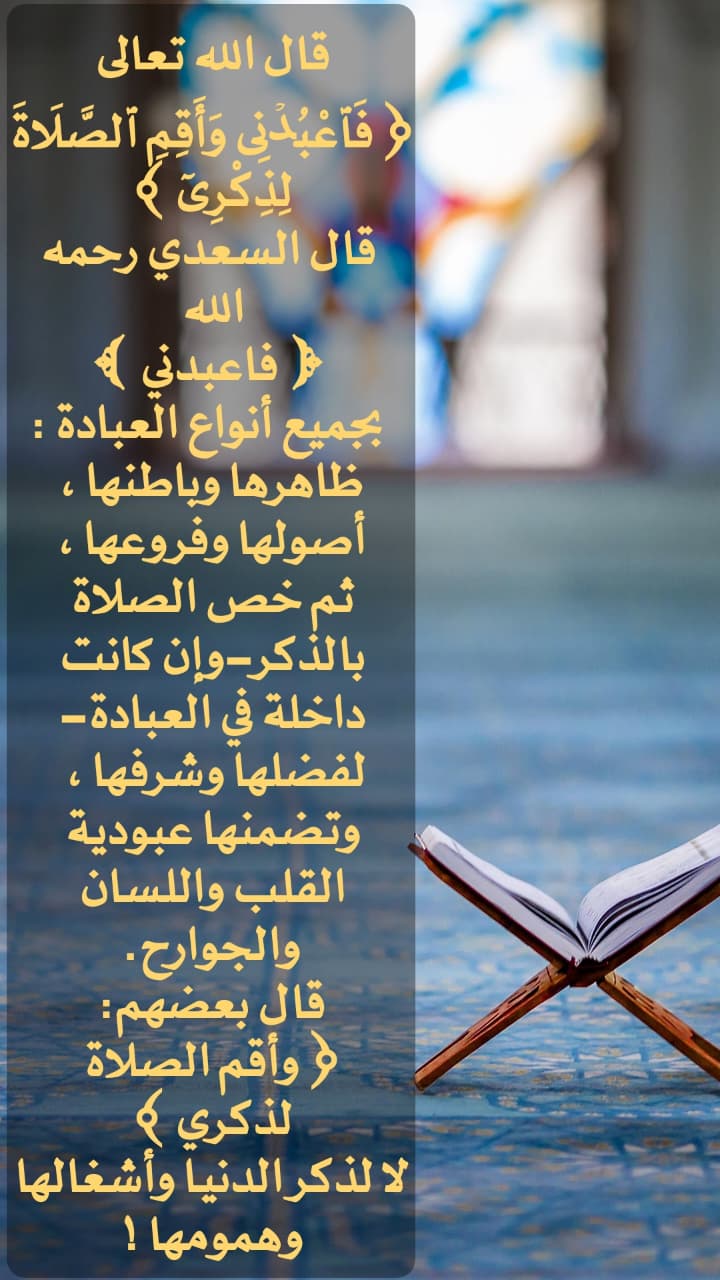 قال الله تعالى
﴿ فَٱعْبُدْنِى وَأَقِمِ ٱلصَّلَاةَ
لِذِكْرِىٓ ﴾
قال السعدي رحمه
الله
﴿ فاعبدني ﴾
بجميع أنواع العبادة :
ظاهرها وباطنها ،
أصولها وفروعها ،
ثم خص الصلاة
بالذكر–وإن كانت
داخلة في العبادة–
لفضلها وشرفها ،
وتضمنها عبودية
القلب واللسان
والجوارح.
قال بعضهم:
﴿ وأقم الصلاة
لذكري ﴾
لا لذكر الدنيا وأشغالها
وهمومها !